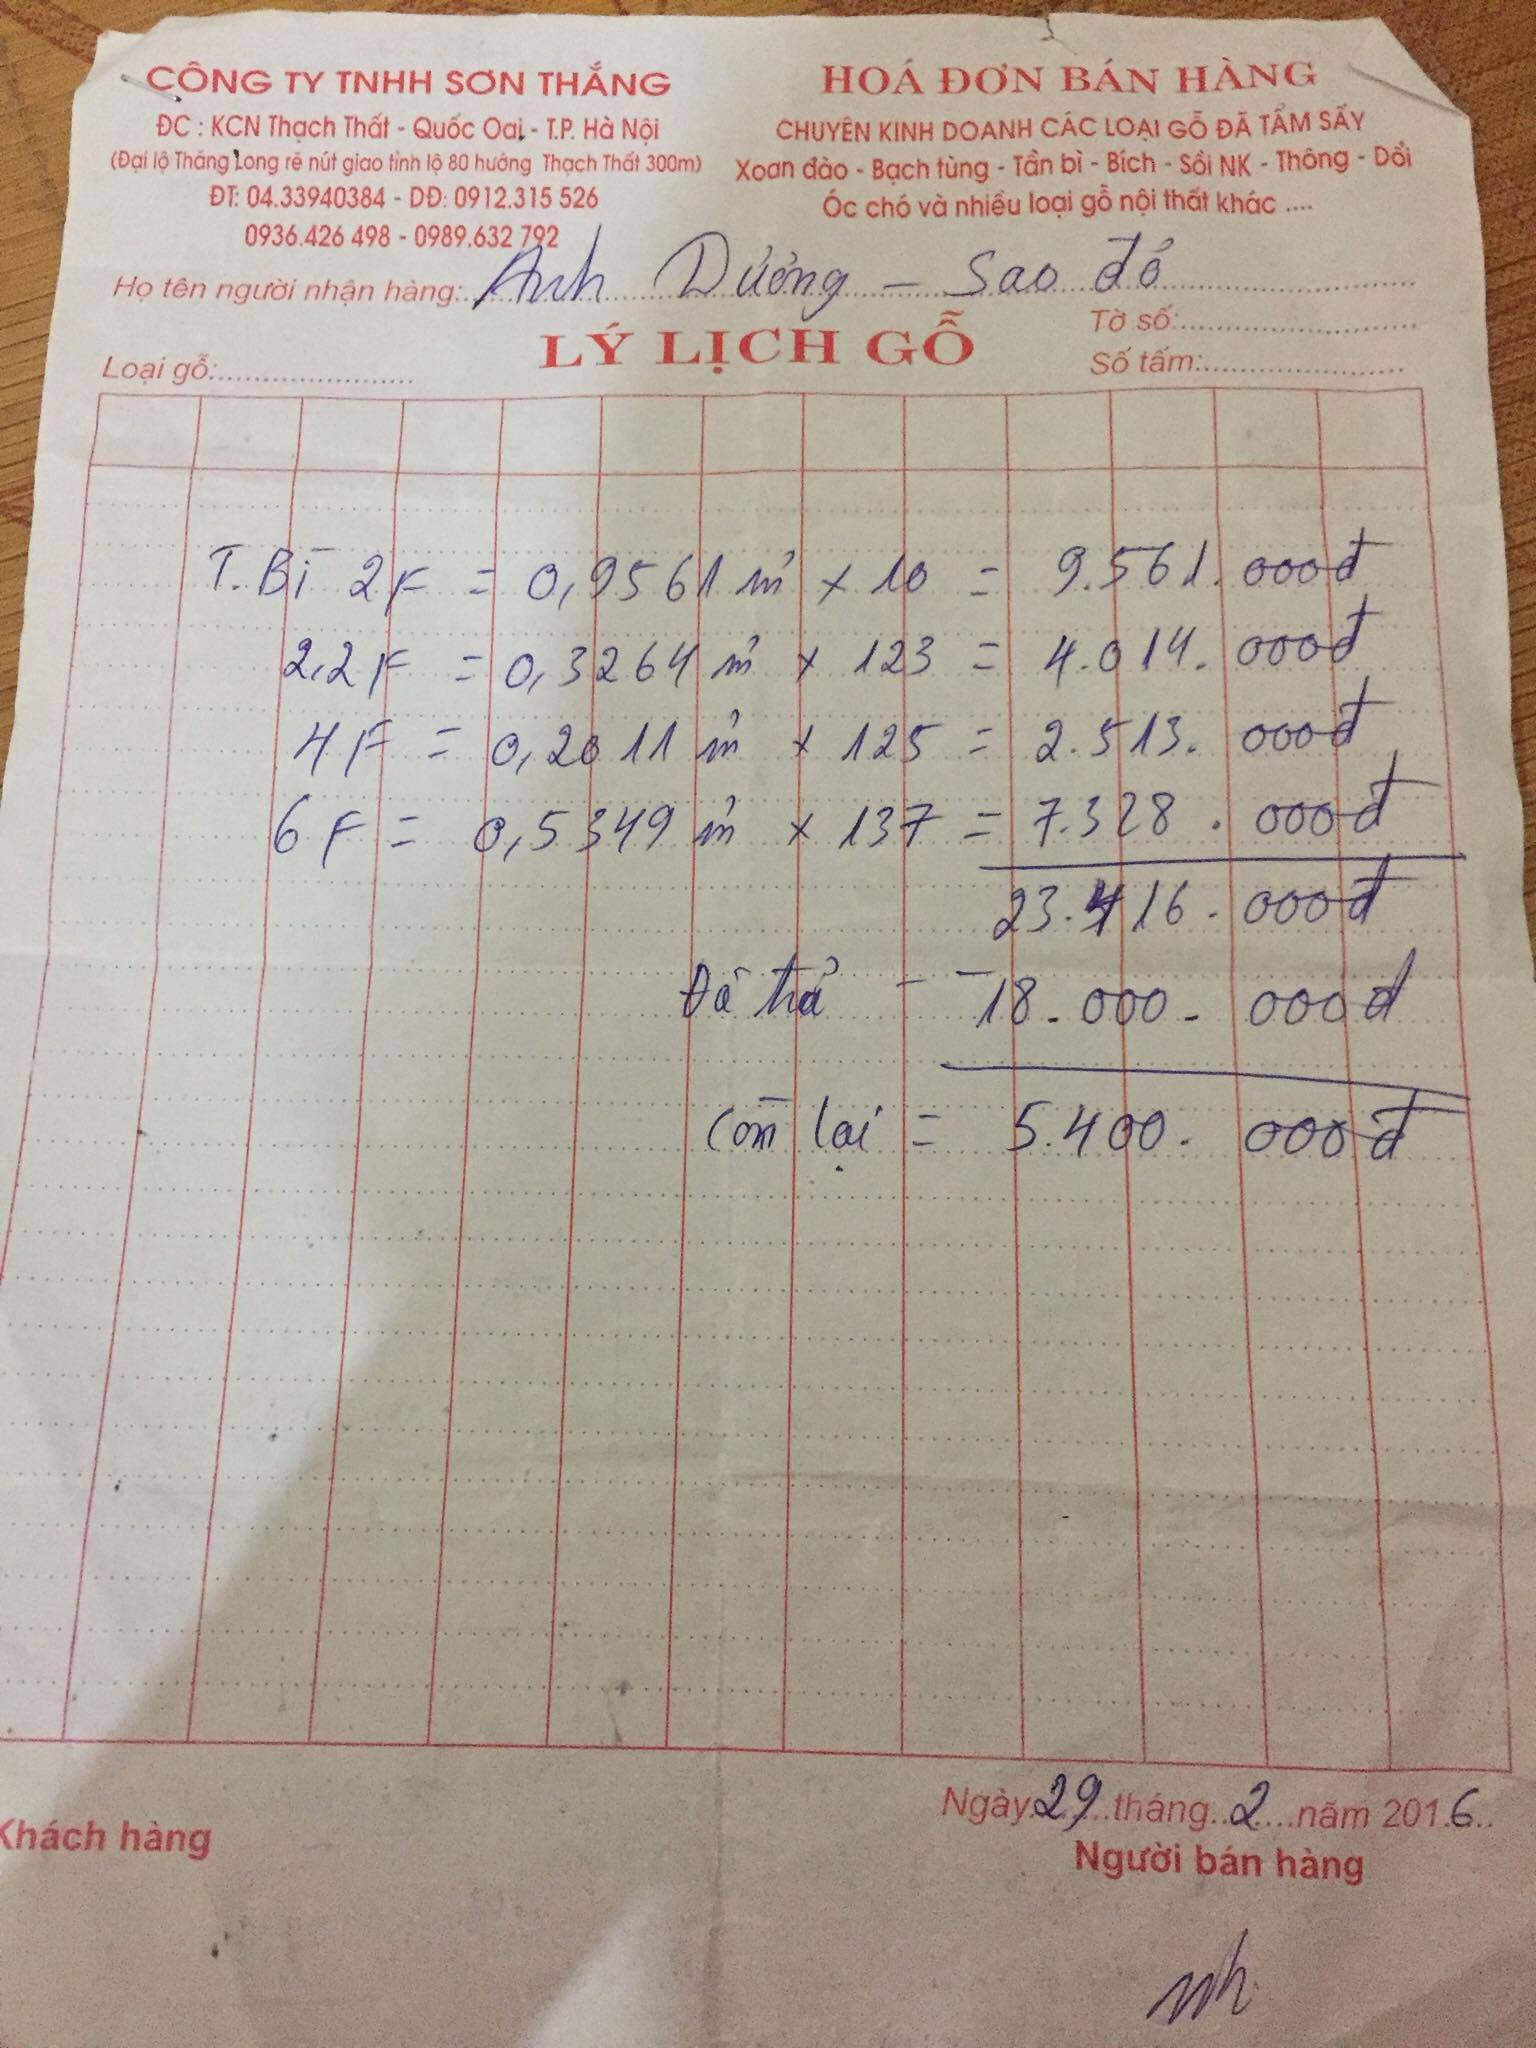 CÔNG TY TNHH SƠN THẮNG
ĐC : KCN Thạch Thất - Quốc Oai - T.P. Hà Nội
(Đại lộ Thăng Long rẽ nút giao tỉnh lộ 80 hướng Thạch Thất 300m)
ĐT: 04.33940384 - DĐ: 0912.315 526
0936.426 498 - 0989.632 792
HOÁ ĐƠN BÁN HÀNG
CHUYÊN KINH DOANH CÁC LOẠI GỖ ĐÃ TẨM SẤY
Xoan đào - Bạch tùng - Tần bì - Bích - Sồi NK - Thông - Dổi
Óc chó và nhiều loại gỗ nội thất khác ....
Họ tên người nhận hàng: Anh Dưởng - Sao đỏ
LÝ LỊCH GỖ
Tờ số:
Loại gỗ:
Số tấm:
T.Bì 2F = 0,9561 m³ x 10 = 9.561.000đ
2,2F = 0,3264 m³ x 123 = 4.014.000đ
4F = 0,2011 m³ x 125 = 2.513.000đ
6F = 0,5349 m³ x 137 = 7.328.000đ
23.416.000đ
Đã trả - 18.000.000đ
Còn lại = 5.400.000đ
Ngày 29 tháng 2 năm 2016
Khách hàng
Người bán hàng